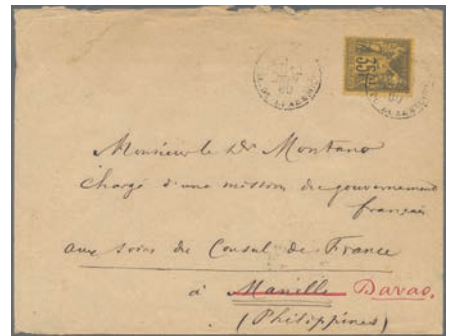 35
80
80
Monsieur le Dr Montano
chargé d'une mission du gouvernement
français
aux soins du Consul de France
à Manille Davao.
(Philippines)